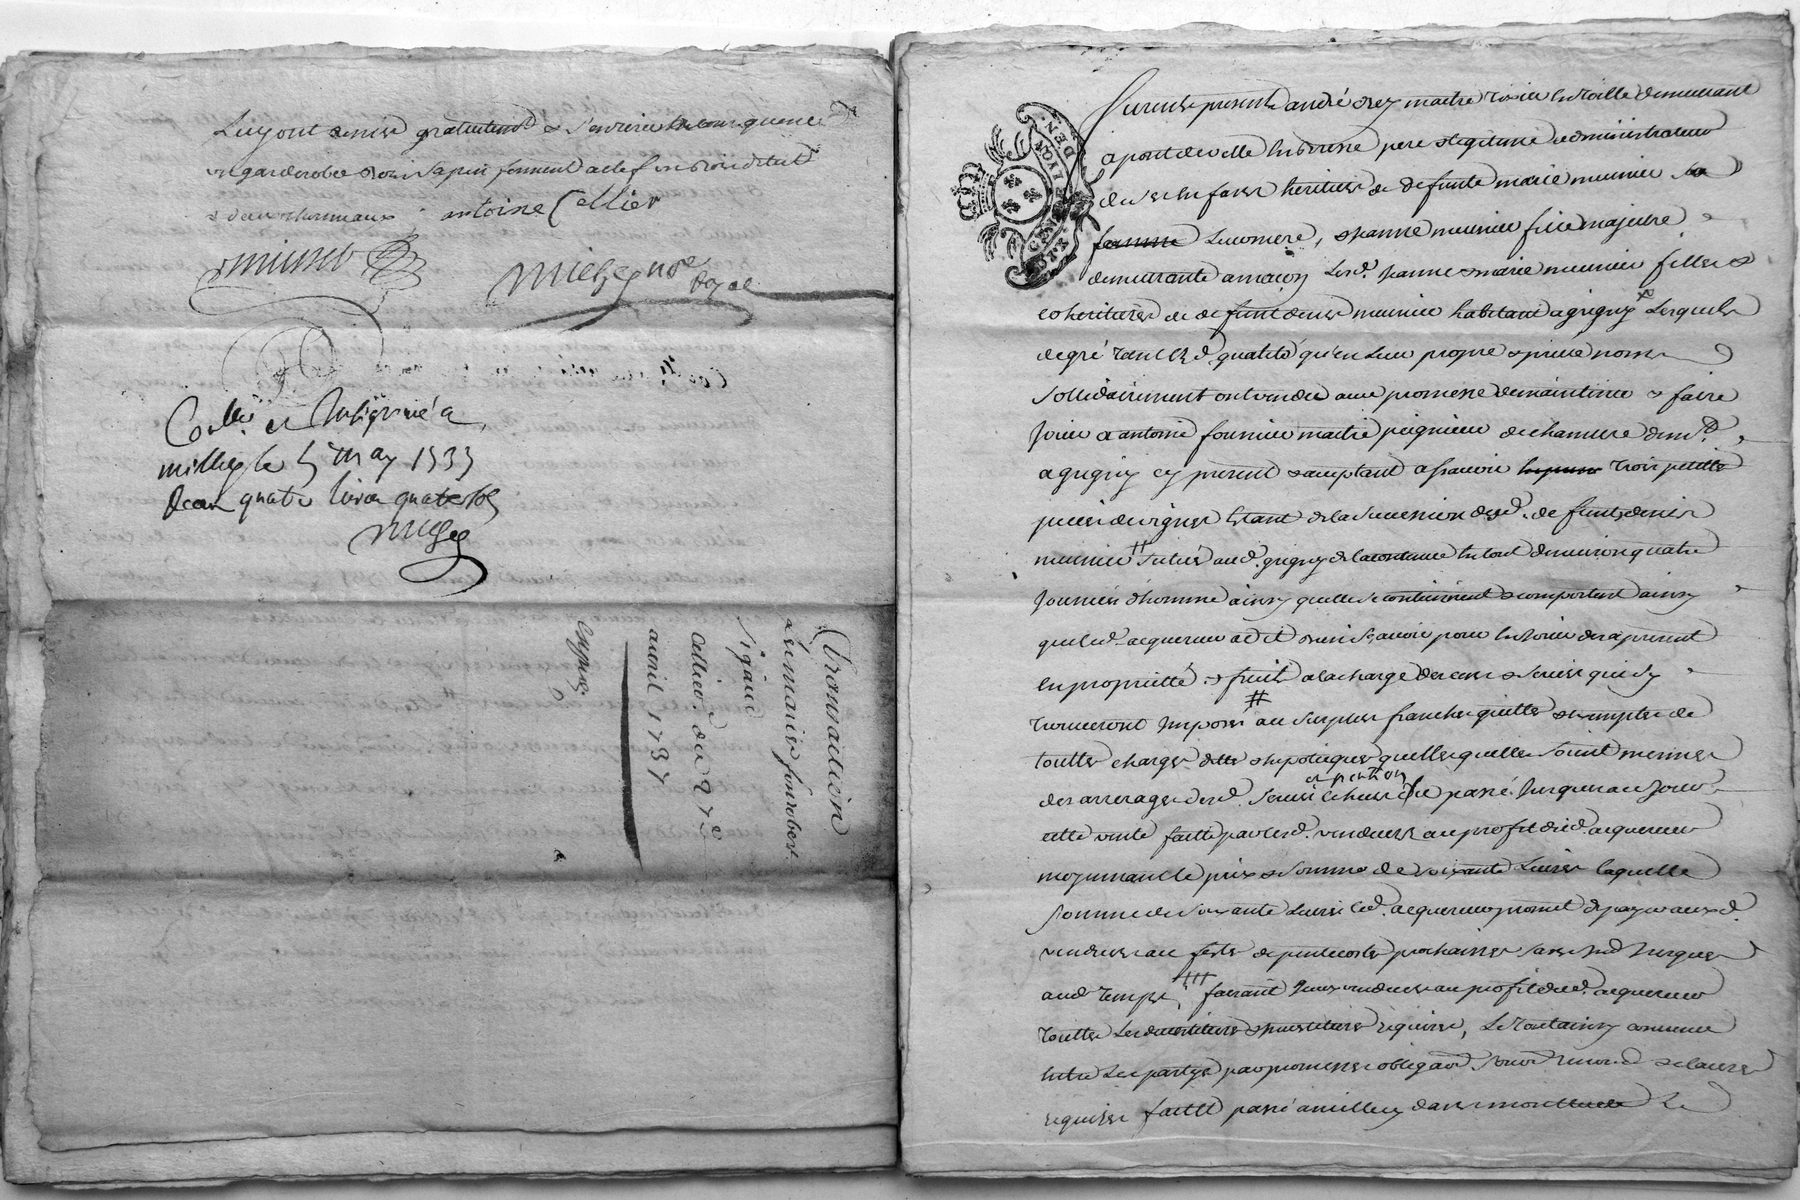 Luy ont remis gratuitement &
& deux chevreaux antoine Cellier
Meunier Milhe nore royal
Conllé et Insignué a
millery le 5 may 1737
Recu quatre livres quatre sols
Milhe
Transaction
Rigaud
Cellier du 27e
avril 1737
Expié
GENE. LYON
Furent present andré Rey maitre tissier en toille demeurant
a pont de velle en bresse pere & legitime administrateur
de ses enfans heritiers de deffunte marie meunier sa
femme Leur mere, & Jeanne meunier fille majeure
demeurante a macon Lesd. Jeanne & marie meunier filles &
coheritieres de deffunt denis meunier habitant a grigny Lesquels
de gré tant esd. qualités qu'en Leur propre & privé nom
sollidairement ont vendu avec promesse de maintenir & faire
jouir a antoine fournier maitre peigneur de chanvre demt.
a grigny cy present & acceptant a scavoir trois petittes
pieces de vignes Estant de la succession dud. deffunt denis
meunier situées aud. grigny de la contenue en tout d'environ quatre
journées d'homme ainsy quelles se contiennent & comportent ainsy
que led. acquereur a dit bien scavoir pour en jouir des a present
en proprietté & fruits a la charge des cens & servis qui sy
trouveront Imposés au surplus franches quittes & exemptes de
touttes charges dettes & hipoteques quelles quelles soient mesmes
des arrerages desd. servis echus du passé Jusques a ce jour
cette vente faitte par lesd. vendeurs au profit dud. acquereur
moyennant le prix & somme de soixante Livres laquelle
somme de soixante Livres led. acquereur promet de payer auxd.
vendeurs au festes de pentecoste prochaines sans Int. Jusques
aud. temps, faisant Iceux vendeurs au profit dud. acquereur
touttes Les devestitures & Investitures requises, Le tout ainsy convenu
entre Les partyes par promesse obligaon. soumon. renon. & clauses
requises fait et passé a millery dans